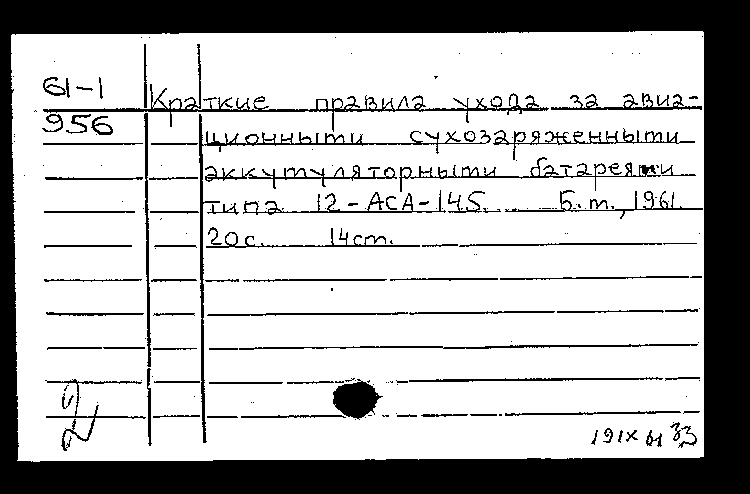 61-1
Краткие правила ухода за авиа-
956
ционными сухозаряженными
аккумуляторными батареями
типа 12-АСА-145. Б.м., 1961.
20с. 14см.
2
191X 61